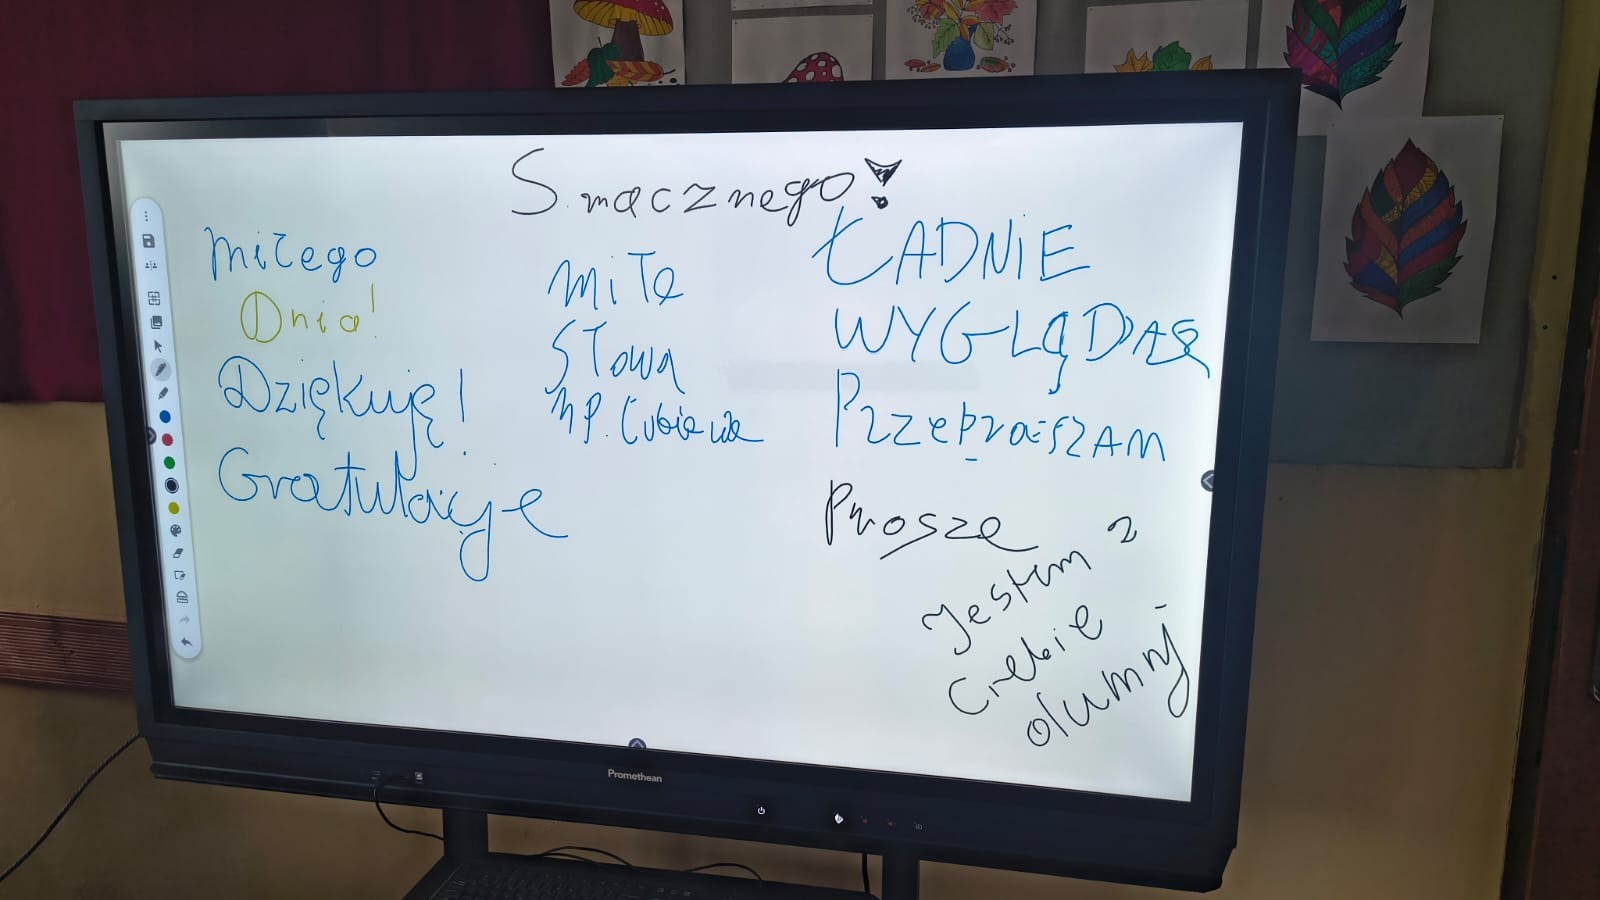 Smacznego!
Miłego
Dnia!
Dziękuję!
Gratulacje
Miłe
Słowa
np. Lubię cię
ŁADNIE
WYGLĄDASZ
PRZEPRASZAM
Proszę
Jestem z
Ciebie
dumny
Promethean